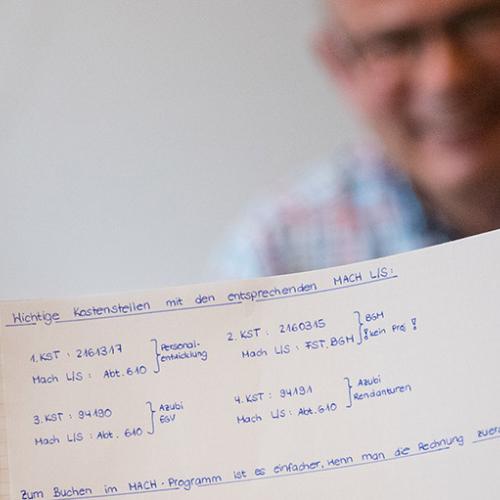 Wichtige Kostenstellen mit den entsprechenden MACH L/S:
1. KST : 2161317 } Personal-
entwicklung
Mach L/S : Abt. 610
2. KST : 2160315 } BGM
! kein Proj !
Mach L/S : FST, BGM
3. KST : 94190 } Azubi
EGV
Mach L/S : Abt. 610
4. KST : 94191 } Azubi
Rendanturen
Mach L/S : Abt. 610
Zum Buchen im MACH - Programm ist es einfacher, wenn man die Rechnung